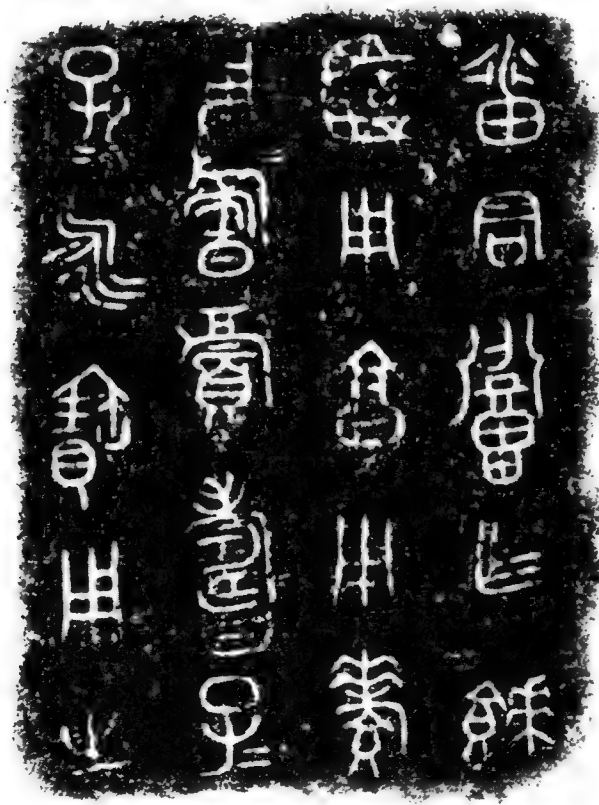 番君召乍餴
簠用亯用養
用祈眉壽子=
孫=永寶用之